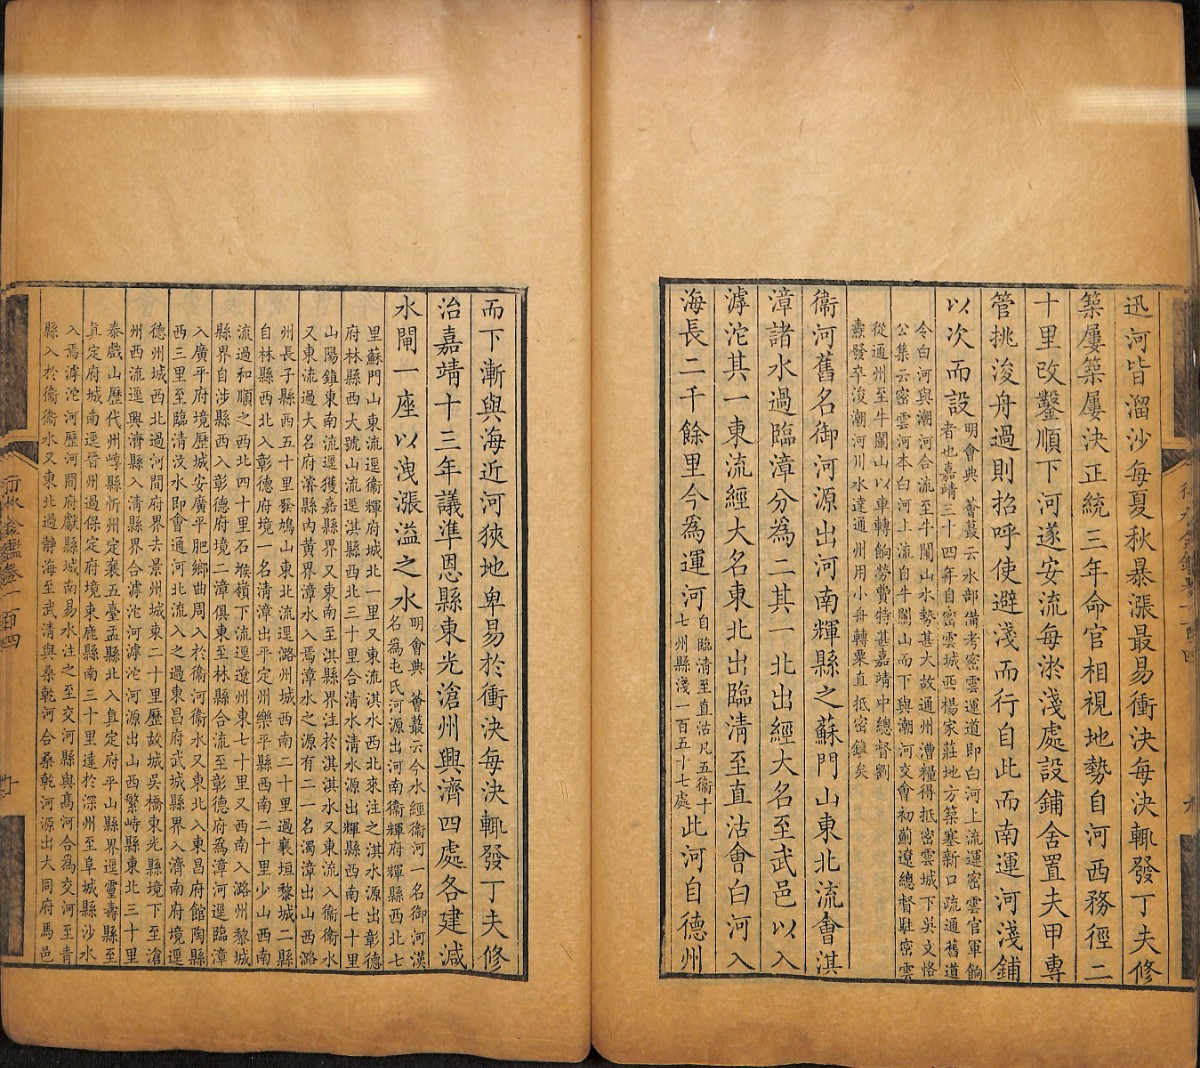 迅河皆溜沙每夏秋暴漲最易衝決每決輒發丁夫修
築屢築屢決正統三年命官相視地勢自河西務徑二
十里改鑿順下河遂安流每淤淺處設鋪舍置夫甲專
管挑浚舟過則招呼使避淺而行自此而南運河淺鋪
以次而設明會典 薈蕞云水部備考密雲運道即白河上流運密雲官軍餉
者也嘉靖三十四年自密雲城西楊家莊地方築塞新口疏通舊道
今白河與潮河合流至牛闌山水勢甚大故通州漕糧得抵密雲城下吳文恪
公集云密雲河本白河上流自牛闌山而下與潮河交會初薊遼總督駐密雲
從通州至牛闌山以車轉餉勞費特甚嘉靖中總督劉
燾發卒浚潮河川水達通州用小舟轉粟直抵密雖矣
衞河舊名御河源出河南輝縣之蘇門山東北流會淇
漳諸水過臨漳分為二其一北出經大名至武邑以入
滹沱其一東流經大名東北出臨淸至直沽會白河入
海長二千餘里今為運河自臨淸至直沽凡五衞十
七州縣淺一百五十七處此河自德州
而下漸與海近河狹地卑易於衝決每決輒發丁夫修
治嘉靖十三年議準恩縣東光滄州興濟四處各建減
水閘一座以洩漲溢之水明會典 薈蕞云今水經衞河一名御河漢
名為屯氏河源出河南衞輝府輝縣西北七
里蘇門山東流逕衞輝府城北一里又東流淇水西北來注之淇水源出彰德
府林縣西大號山流逕淇縣西北三十里合淸水淸水源出輝縣西南七十里
山陽鎮東南流逕獲嘉縣界又東南至淇縣界注於淇淇水又東流入衞衞水
又東流過大名府濬縣內黃界漳水入焉漳水之源有二一名濁漳出山西潞
州長子縣西五十里發鳩山東北流逕潞州城西南二十里過襄垣黎城二縣
自林縣西北入彰德府境一名淸漳出平定州樂平縣西南二十里少山西南
流過和順之西北四十里石堠嶺下流逕遼州東七十里又西南入潞州黎城
縣界自涉縣西入彰德府境二漳俱東至林縣合流至彰德府為漳河逕臨漳
入廣平府境歷成安廣平肥鄉曲周入於衞河衞水又東北入東昌府館陶縣
西三里至臨淸汶水即會通河北流入之過東昌府武城縣界入濟南府境逕
德州城西北過河間府界去景州城東二十里歷故城吳橋東光縣境下至滄
州西流逕興濟縣入淸縣界合滹沱河滹沱河源出山西繁峙縣東北三十里
泰戲山歷代州崞縣忻州定襄五臺盂縣北入眞定府平山縣界逕靈壽縣至
眞定府城南逕晉州過保定府境束鹿縣南三十里達於深州至阜城縣沙水
入焉滹沱河歷河間府獻縣城南易水注之至交河縣與高河合為交河至靑
縣入於衞衞水又東北過靜海至武淸與桑乾河合桑乾河源出大同府馬邑
行水金鑑卷一百四